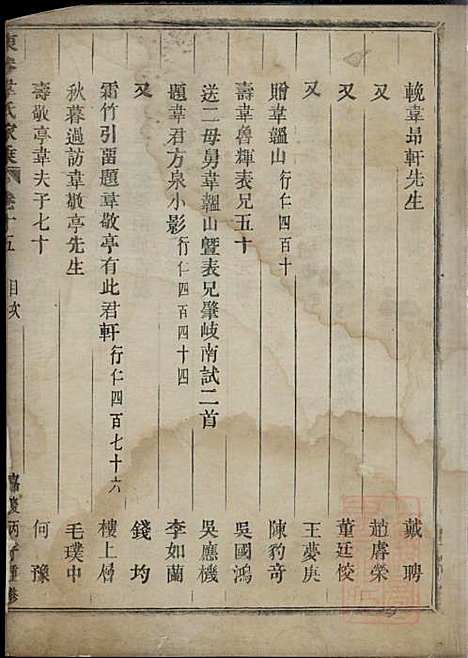 輓韋昻軒先生 戴聘
又 趙睿榮
又 董廷俊
又 王夢庚
贈韋韞山行仁四百十 陳豹奇
壽韋魯輝表兄五十 吳國鴻
送二母舅韋韞山暨表兄肇岐南試二首 吳應機
題韋君方泉小影行仁四百四十四 李如蘭
又 錢均
霜竹引薔題韋敬亭有此君軒行仁四百七十六 樓上層
秋暮過訪韋敬亭先生 毛璞中
壽敬亭韋夫子七十 何豫
東 韋氏家乘 卷十五 目次 嘉慶丙子重修